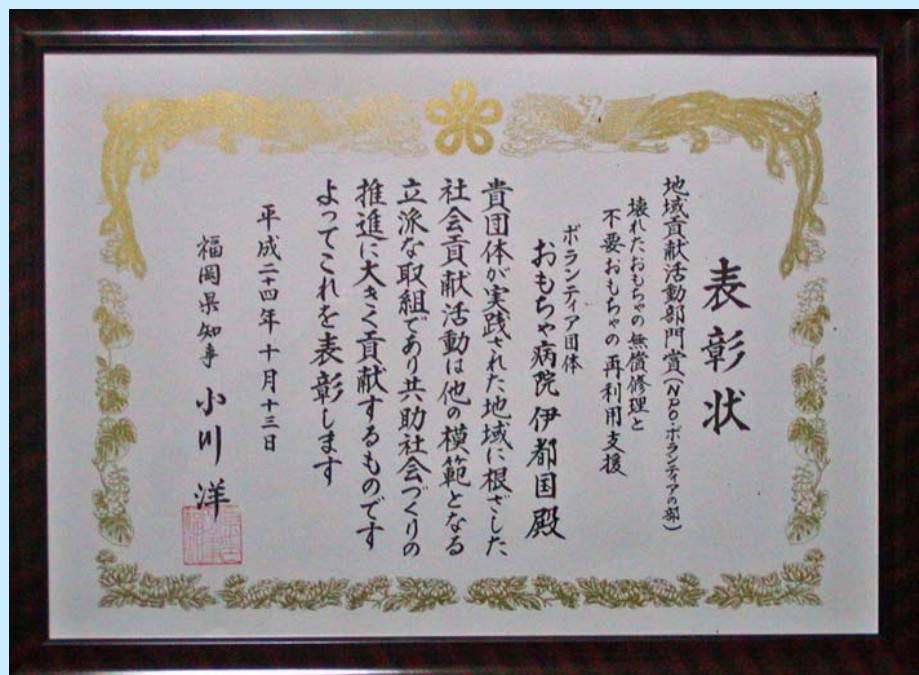 表彰状
地域貢献活動部門賞(NPO・ボランティアの部)
壊れたおもちゃの無償修理と
不要おもちゃの再利用支援
ボランティア団体
おもちゃ病院伊都国殿
貴団体が実践された地域に根ざした
社会貢献活動は他の模範となる
立派な取組であり共助社会づくりの
推進に大きく貢献するものです
よってこれを表彰します
平成二十四年十月十三日
福岡県知事 小川洋